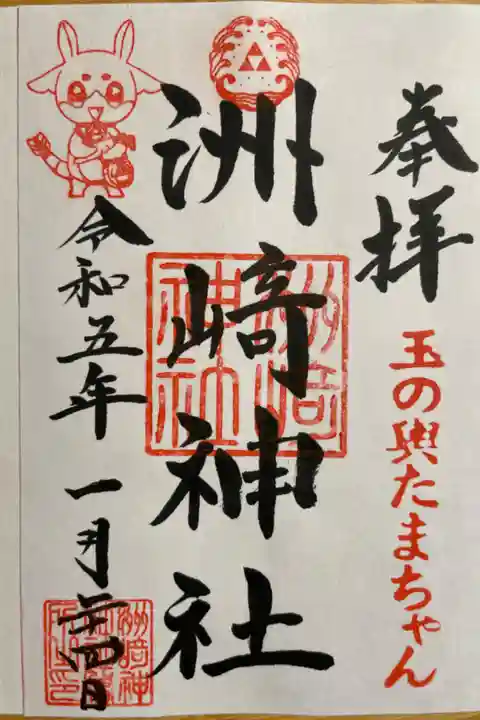 奉拝
玉の輿たまちゃん
洲崎神社
洲崎神社
令和五年 一月二十四日